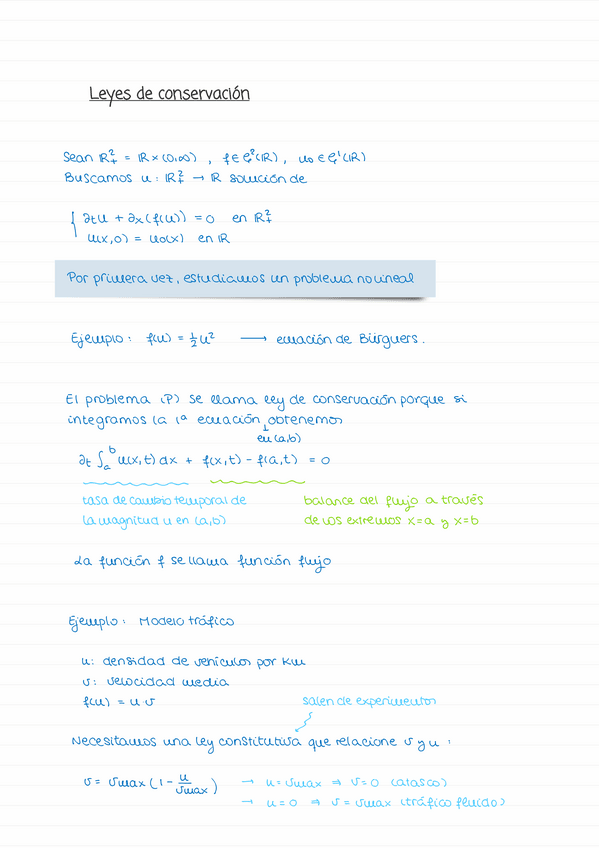 Leyes de conservación
Sean ℝ²₊ = ℝ × (0,∞) , f ∈ 𝒞²(ℝ) , u₀ ∈ 𝒞¹(ℝ)
Buscamos u : ℝ²₊ → ℝ solución de
{ ∂tu + ∂x(f(u)) = 0 en ℝ²₊
u(x,0) = u₀(x) en ℝ
Por primera vez, estudiamos un problema no lineal
Ejemplo: f(u) = ½u² → ecuación de Bürguers.
El problema (P) se llama ley de conservación porque si
integramos la 1ª ecuación obtenemos
en (a,b)
∂t ∫ₐᵇ u(x,t) dx + f(x,t) - f(a,t) = 0
tasa de cambio temporal de balance del flujo a través
la magnitud u en (a,b) de los extremos x=a y x=b
La función f se llama función flujo
Ejemplo: Modelo tráfico
u: densidad de vehículos por km
v: velocidad media
f(u) = u·v salen de experimentos
Necesitamos una ley constitutiva que relacione v y u :
v = vmax (1 - u/vmax) → u = vmax ⇒ v = 0 (atasco)
→ u = 0 ⇒ v = vmax (tráfico fluido)